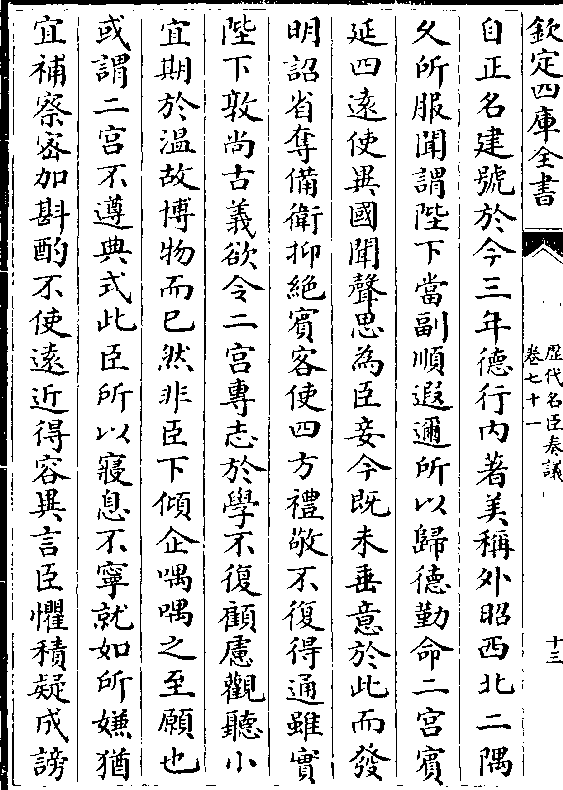 欽定四庫全書
歷代名臣奏議
卷七十一
十三
自正名建號於今三年德行內著美稱外昭西北二隅
乆所服聞謂陛下當副順遐邇所以歸德勤命二宮賓
延四遠使異國聞聲思為臣妾今既未垂意於此而發
明詔省奪備衛抑絕賓客使四方禮敬不復得通雖實
陛下敦尚古義欲令二宮專志於學不復顧慮觀聽小
宜期於溫故博物而已然非臣下傾企喁喁之至願也
或謂二宮不遵典式此臣所以寢息不寧就如所嫌猶
宜補察宻加斟酌不使遠近得容異言臣懼積疑成謗